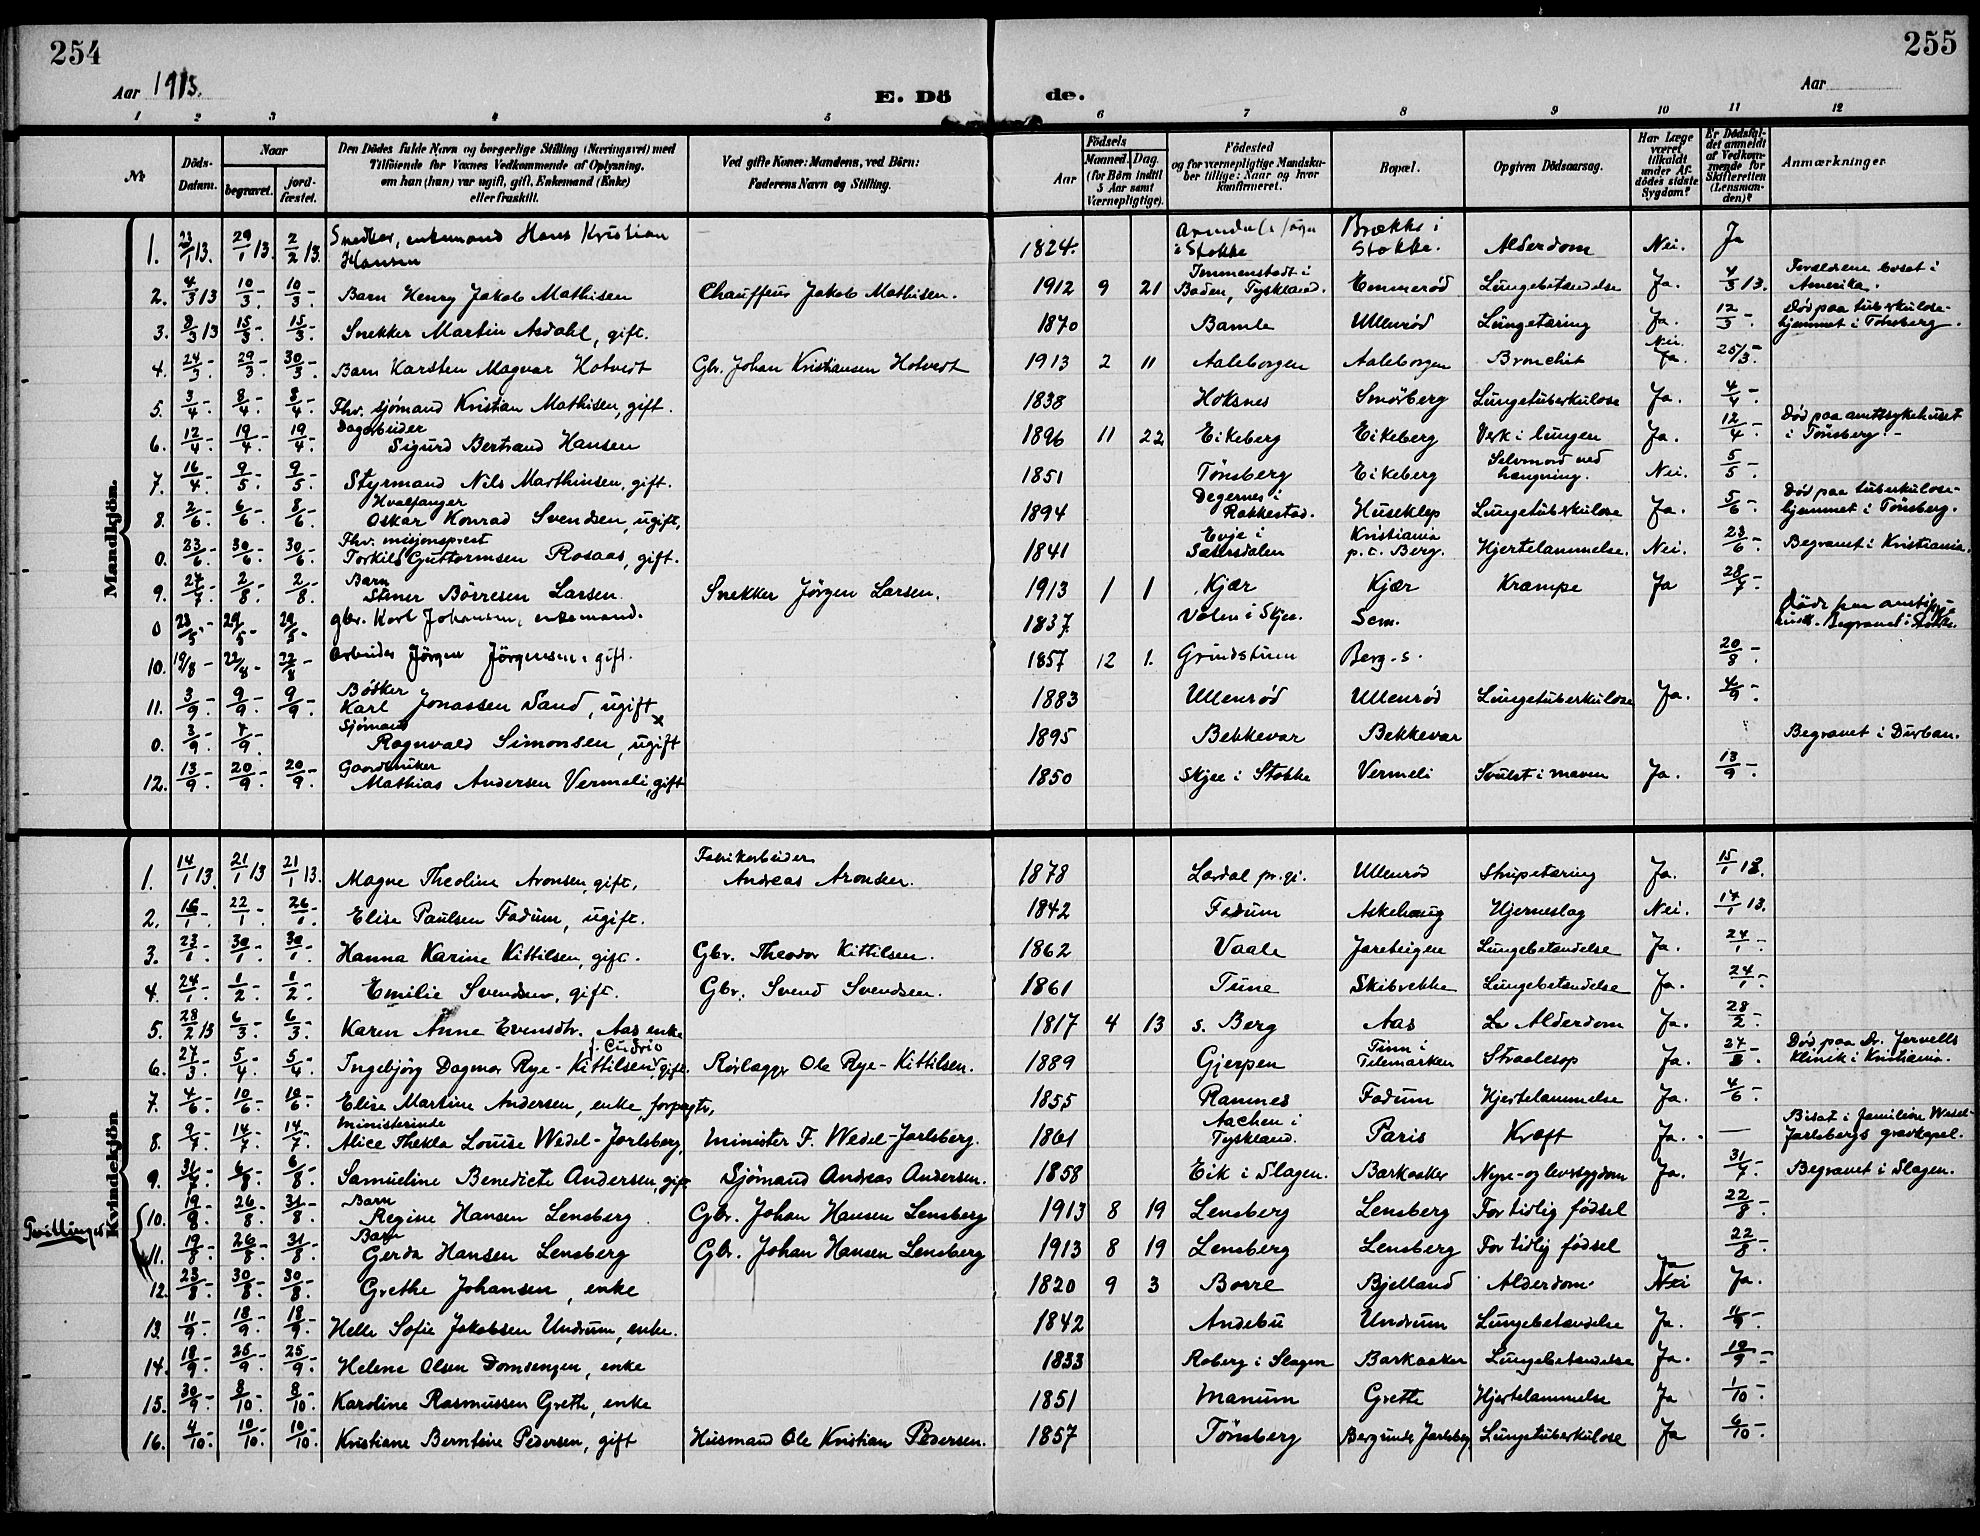 254
255
Aar 1913.
E. Dö de.
Aar
1 2 3 4 5 6 7 8 9 10 11 12
No Döds-Datum. Naar begravet. jord-fæstet. Den Dödes fulde Navn og borgerlige Stilling (Næringsvei) med Tilföiende for Voxnes Vedkommende af Oplysning, om han (hun) var ugift, gift, Enkemand (Enke) eller fraskilt. Ved gifte Koner: Mandens, ved Börn: Faderens Navn og Stilling. Födsels Aar Maaned. Dag. (for Börn indtil 5 Aar samt Værnepligtige). Födested og for værnepligtige Mandskaber tillige: Naar og hvor konfirmeret. Bopæl. Opgiven Dödsaarsag. Har Læge været tilkaldt under Afdödes sidste Sygdom? Er Dödsfaldet anmeldt af Vedkommende for Skifteretten (Lensmanden)? Anmærkninger
Mandkjön.
1. 23/1 13. 29/1 13 2/2 13. Snedker, enkemand Hans Kristian Hansen 1824. i Stokke Brække i Stokke. Alderdom Nei. Ja
2. 4/3 13 10/3 - 10/3 - Barn Henry Jakob Mathisen Chauffeur Jakob Mathisen. 1912 9 21 Immenstadt i Baden, Tyskland. Emmerød Lungebetændelse Ja. 4/3 13. Forældrene bosat i Amerika.
3. 8/3 13 15/3 - 15/3 - Snekker Martin Asdahl, gift. 1870 Bamle Ullenrød Lungetæring Ja. 12/3 - Død paa tuberkulose-hjemmet i Tønsberg.
4. 24/3 - 29/3 - 30/3 - Barn Karsten Magnar Hotvedt Gbr. Johan Kristiansen Hotvedt 1913 2 11 Aaleborgen Aaleborgen Bronchit Nei. Ja. 25/3 -
5. 3/4 - 8/4 - 8/4 - Fhv. sjømand Kristian Mathisen, gift. 1838 Hoksnes Smörberg Lungetuberkulose Ja. 4/4 -
6. 12/4 - 19/4 - 19/4 - Dagarbeider Sigurd Bertrand Hansen 1896 11 22 Eikeberg Eikeberg Verk i lungen Ja. 12/4 - Død paa amtssykehuset i Tönsberg. -
7. 16/4 - 9/5 - 9/5 - Styrmand Nils Marthinsen, gift. 1851 Tønsberg Eikeberg Selvmord ved hængning. Nei. 5/5 -
8. 2/6 - 6/6 - 8/6 - Hvalfanger Oskar Konrad Svendsen, ugift, 1894 Degernes i Rakkestad. Huseklep Lungetuberkulose Ja. 5/6 - Död paa tuberkulose-hjemmet i Tönsberg.
0. 23/6 - 30/6 - 30/6 - Fhv. misjonsprest Torkild Guttormsen Rosaas, gift. 1841 Evje i Sætersdalen Kristiania p.t. Berg. Hjertelammelse. Nei. 23/6 - Begravet i Kristiania.
9. 27/7 - 2/8 - 2/8 - Barn Stener Börresen Larsen Snekker Jörgen Larsen. 1913 1 1 Kjær Kjær Krampe Ja 28/7 -
0 23/5 - 29/5 - 29/5 - gbr. Karl Johansen, enkemand. 1837. Valen i Skjee. Sem. Döde paa amtssyge-huset. Begravet i Stokke.
10. 19/8 - 22/8 - 22/8 - Arbeider Jörgen Jörgensen, gift. 1857 12 1. Grindstuen Berg. s. 20/8 -
11. 3/9 - 9/9 - 9/9 - Bötker Karl Jonassen Sand, ugift 1883 Ullenrød Ullenrød Lungetuberkulose Ja. 4/9 -
0. 3/9 - 4/9 - Sjömand Ragnvald Simonsen, ugift x 1895 Bekkevar Bekkevar Begravet i Durban.
12. 13/9 - 20/9 - 20/9 - Gaardbruker Mathias Andersen Vermeli, gift 1850 Skjee i Stokke Vermeli Svulst i maven Ja. 13/9 -
Kvindekjön
1. 14/1 13. 21/1 13 21/1 13. Magne Theoline Aronsen, gift, Fabrikarbeider Andreas Aronsen. 1878 Lardal pr.gj. Ullenrød Strupetæring Ja. 15/1 13.
2. 16/1 - 22/1 - 26/1 - Elise Paulsen Fadum, ugift. 1842 Fadum Askehaug Hjerneslag Nei. 17/1 13.
3. 23/1 - 30/1 - 30/1 - Hanna Karine Kittilsen, gift. Gbr. Theodor Kittilsen. 1862 Vaale Jareteigen Lungebetændelse Ja. 24/1 -
4. 24/1 - 1/2 - 1/2 - Emilie Svendsen, gift. Gbr. Svend Svendsen. 1861 Tune Skibrekke Lungebetændelse Ja. 24/1 -
5. 28/2 13 6/3 - 6/3 - Karen Anne Evensdtr. Aas enke 1817 4 13 s. Berg Aas Alderdom Ja. 28/2 -
6. 27/3 - 5/4 - 5/4 - Ingebjörg Dagmar Rye-Kittilsen, gift. f. Cudrio Rörlægger Ole Rye-Kittilsen. 1889 Gjerpen Tinn i Telemarken Straalesop Ja. 27/3 - Död paa Dr. Jervells klinik i Kristiania.
7. 4/6 - 10/6 - 10/6 - Elise Martine Andersen, enke, forpagtr, 1855 Ramnes Fadum Hjertelammelse Ja. 4/6 -
8. 9/7 - 14/7 - 14/7 - Ministerinde Alice Thekla Louise Wedel-Jarlsberg, Minister F. Wedel-Jarlsberg. 1861 Aachen i Tyskland. Paris Kræft Ja. - — Bisat i familien Wedel-Jarlsbergs gravkapel.
9. 31/7 - 6/8 - 6/8 - Samueline Benedicte Andersen, gift Sjömand Andreas Andersen. 1858 Eik i Slagen. Barkaaker Nyre- og leversygdom Ja. 31/7 - Begravet i Slagen.
Tvillinger
10. 19/8 - 26/8 - 31/8 - Barn Regine Hansen Lensberg Gbr. Johan Hansen Lensberg 1913 8 19 Lensberg Lensberg For tidlig födsel 22/8 -
11. 19/8 - 26/8 - 31/8 - Barn Gerda Hansen Lensberg Gbr. Johan Hansen Lensberg 1913 8 19 Lensberg Lensberg For tidlig födsel 22/8 -
12. 23/8 - 30/8 - 30/8 - Grethe Johansen, enke 1820 9 3 Borre Bjelland Alderdom. Ja Nei Ja.
13. 11/9 - 18/9 - 18/9 - Helle Sofie Jakobsen Undrum, enke. 1842 Andebu Undrum Lungebetændelse Ja. 11/9 -
14. 18/9 - 25/9 - 25/9 - Helene Olsen Domsengen, enke 1833 Roberg i Slagen Barkaaker Lungebetændelse Ja. 19/9 -
15. 30/9 - 8/10 - 8/10 - Karoline Rasmussen Grette, enke 1851 Manum Grette Hjertelammelse Ja 1/10 -
16. 4/10 - 10/10 - 10/10 - Kristiane Berntine Pedersen, gift Husmand Ole Kristian Pedersen. 1857 Tønsberg Berg under Jarlsberg Lungetuberkulose Ja 6/10 -